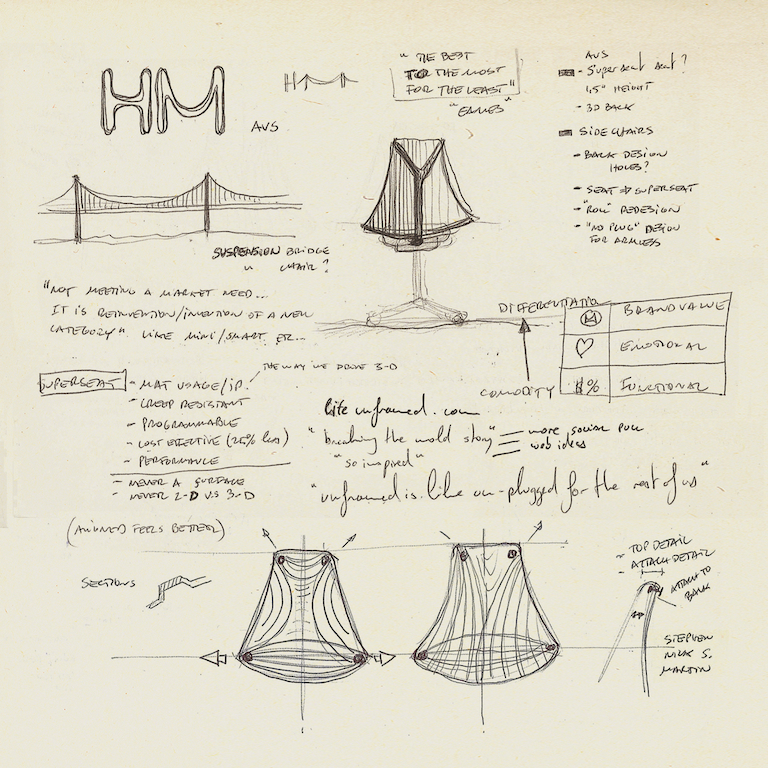 HM
AVS
HM
"THE BEST
FOR THE MOST
FOR THE LEAST"
"EAMES"
AVS
- Superseat seat?
1,5" HEIGHT
- 3D BACK
SIDE CHAIRS
- BACK DESIGN
HOLES?
- SEAT → SUPERSEAT
- "ROLL" REDESIGN
- "NO PLUG" DESIGN
FOR ARMLESS
SUSPENSION BRIDGE
CHAIR?
"NOT MEETING A MARKET NEED...
IT IS REINVENTION/INVENTION OF A NEW
CATEGORY" LIKE MINI/SMART, ETC...
DIFFERENTIATION
COMODITY
M BRAND VALUE
♡ EMOTIONAL
$% FUNCTIONAL
SUPERSEAT
- MAT USAGE/IP.
THE WAY WE DROVE 3-D
- CREEP RESISTANT
- PROGRAMMABLE
- COST EFFECTIVE (25% less)
- PERFORMANCE
- NEVER A SURFACE
- NEVER 2-D VS 3-D
life unframed.com
"breaking the mold story"
more social pull
web ideas
"so inspired"
"unframed is like un-plugged for the rest of us"
(ALIGNED FEELS BETTER)
SECTIONS
- TOP DETAIL
- ATTACH DETAIL
ATTACH TO
BACK
STEPHEN
NICK S.
MARTIN